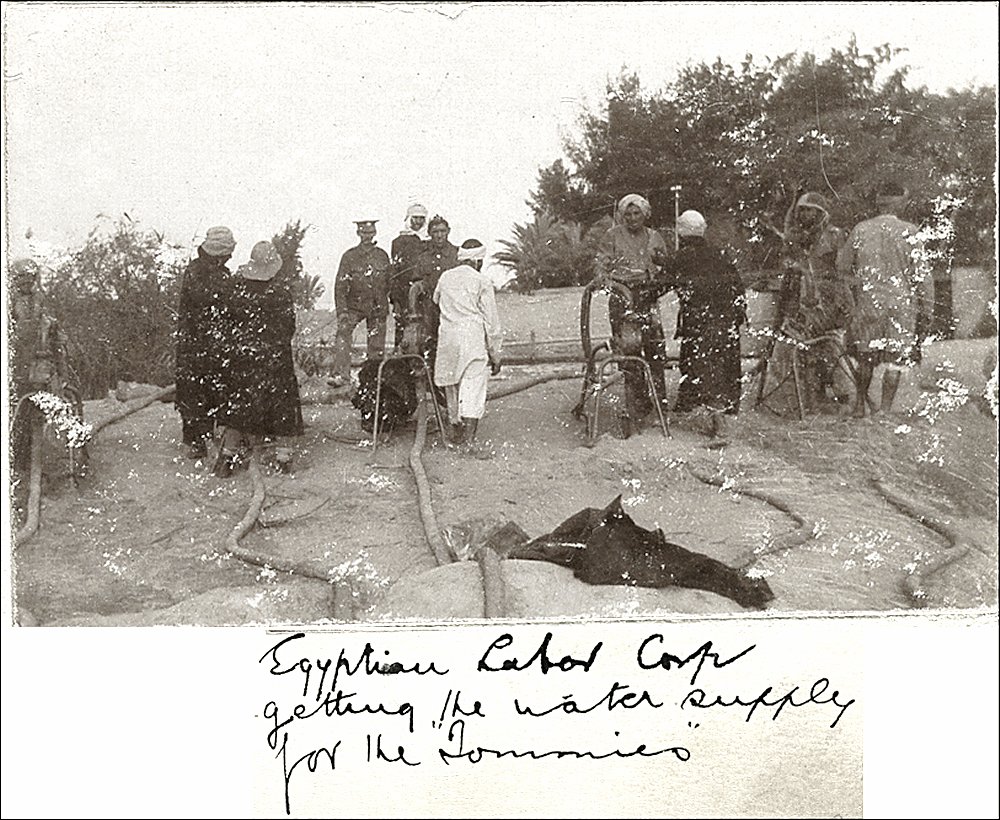 Egyptian Labor Corp
getting the water supply
for the "Tommies"